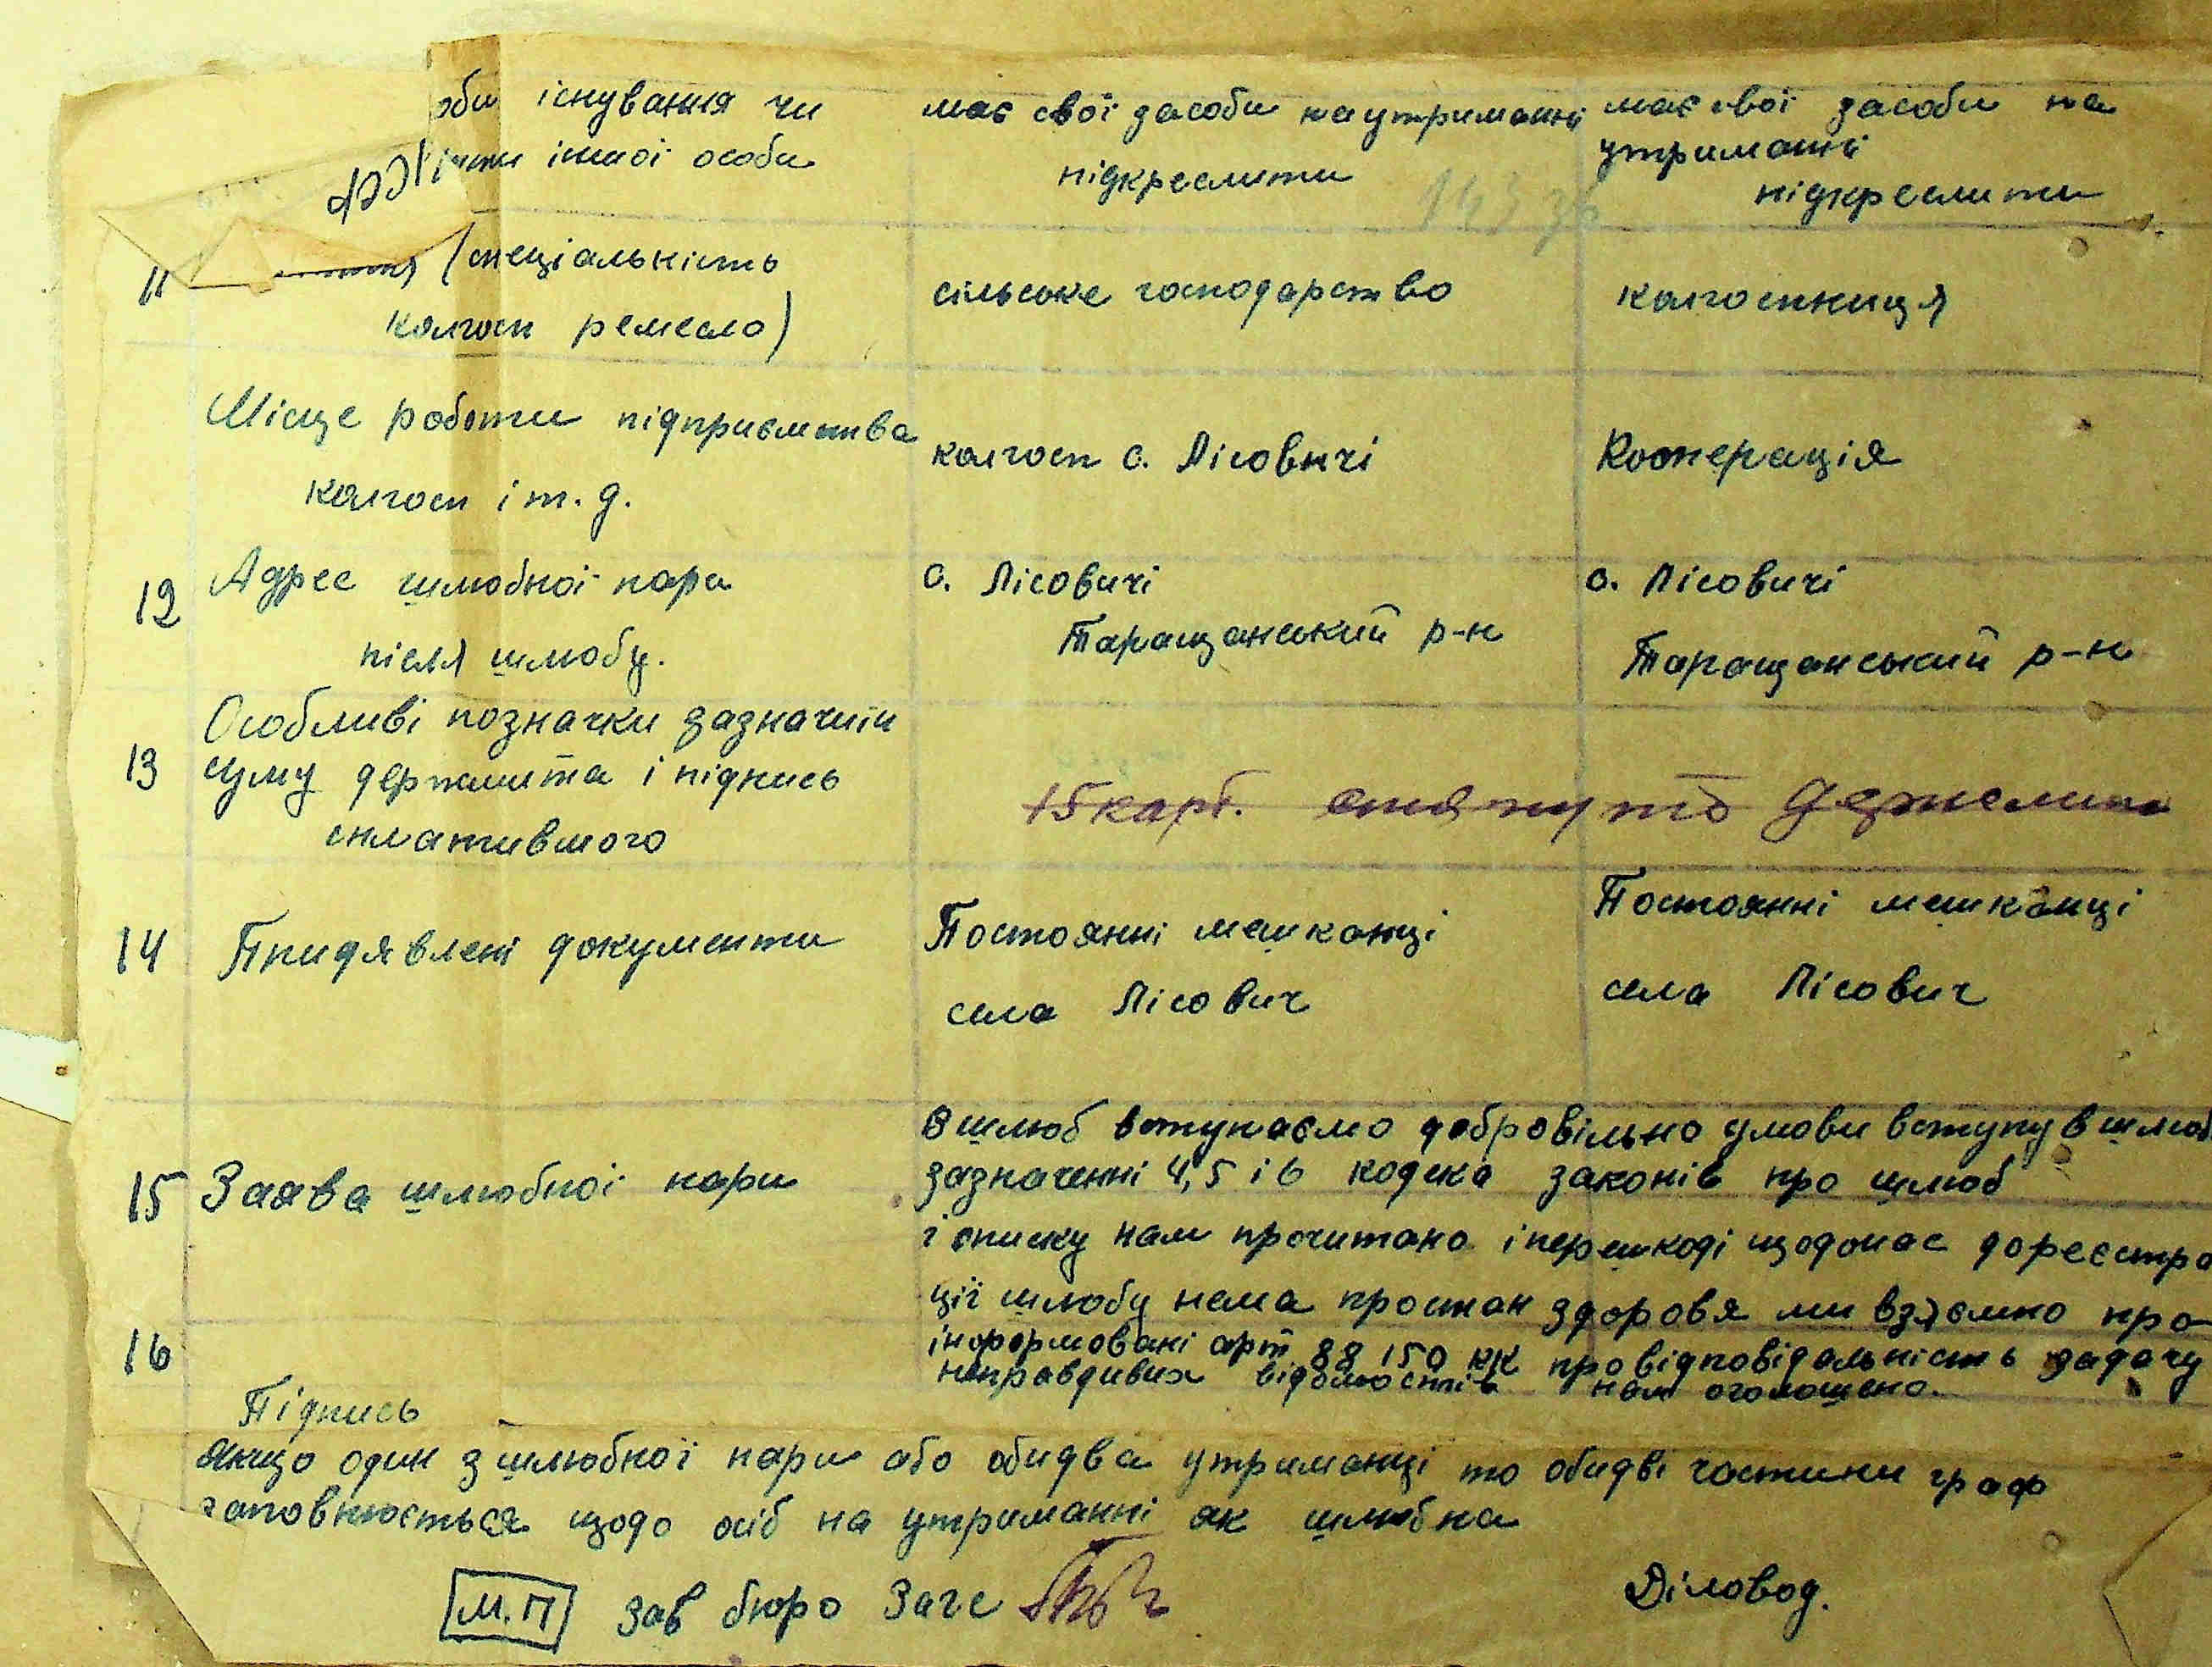 оби існування чи
іншої особи
має свої засоби на утриманні
підкреслити
має свої засоби на
утриманні
підкреслити
11
(спеціальність
колгосп ремесло)
сільське господарство
колгоспниця
Місце роботи підприємства
колгосп і т. д.
колгосп с. Лісовичі
Кооперація
12 Адрес шлюбної пари
після шлюбу.
с. Лісовичі
Таращанський р-н
с. Лісовичі
Таращанський р-н
13 Особливі позначки зазначити
суму держмита і підпись
сплатившого
15 карб. стягнуто держмита
14 Придявлені документи
Постоянні мешканці
села Лісович
Постоянні мешканці
села Лісович
15 Заява шлюбної пари
В шлюб вступаємо добровільно умови вступу в шлюб
зазначенні 4, 5 і 6 кодека законів про шлюб
і опику нам прочитано і перешкоді щодонас дореєстра
ції шлюбу нема простан здоровя ми взяємно про-
інформовані арт 88 150 КК про відповідальність задачу
неправдивих відомостів нам оголошено.
16
Підпись
Якщо один з шлюбної пари або обидва утриманці то обидві частини граф
заповнюється щодо осіб на утриманні як шлюбна
М.П зав бюро Загс
Діловод.